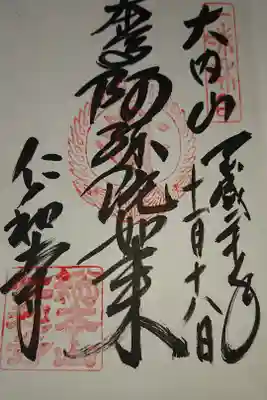 大内山
平成二十年
十一月十八日
本尊阿弥陀如来
仁和寺